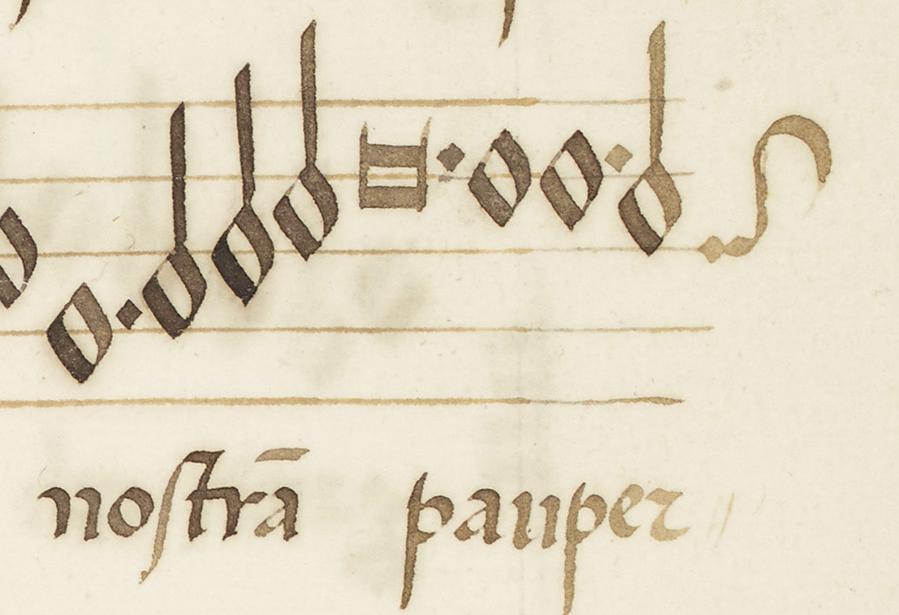 noſtrā pauper